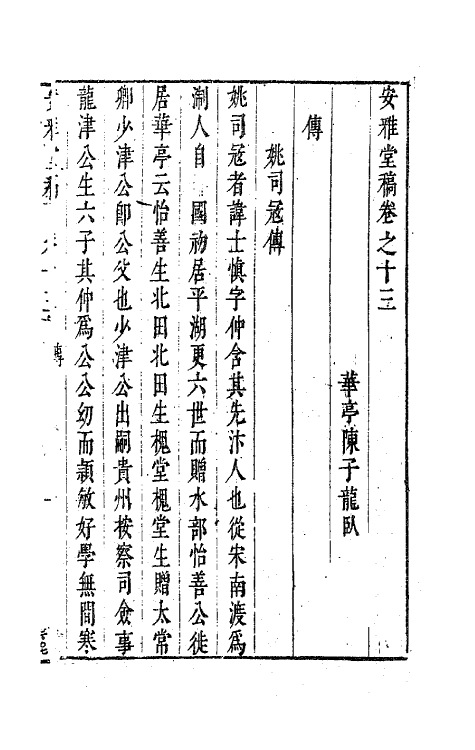 安雅堂稿卷之十三
華亭陳子龍臥
傳
姚司冦傳
姚司冦者諱士慎字仲含其先汴人也從宋南渡爲
淛人自 國初居平湖更六世而贈水部怡善公徙
居華亭云怡善生北田北田生槐堂槐堂生贈太常
卿少津公卽公父也少津公出嗣貴州按察司僉事
龍津公生六子其仲爲公公幼而穎敏好學無間寒
安雅堂稿 卷十三 傳 一